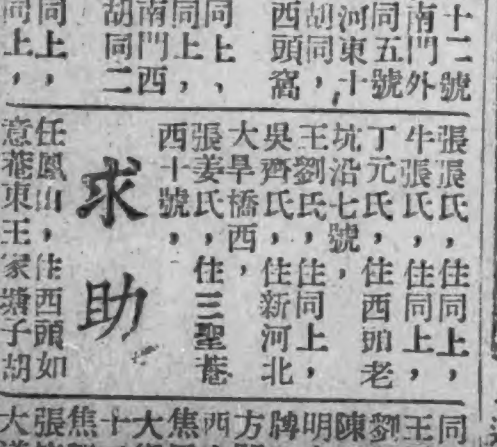 十二號
南門外
同五號
河東十
胡同，
西頭窩
同上，
同上，
南門西
胡同二
同上，
同上，
張張氏，住同上，
牛張氏，住同上，
丁元氏，住西頭老
坑沿七號，
王劉氏，住同上，
吳齊氏，住新河北
大旱橋西，
張姜氏，住三聖菴
西十號，
求助
任鳳山，住西頭如
意菴東王家塘子胡
同
王
劉
陳
明
牌
方
西
焦
大
十
焦
張
大